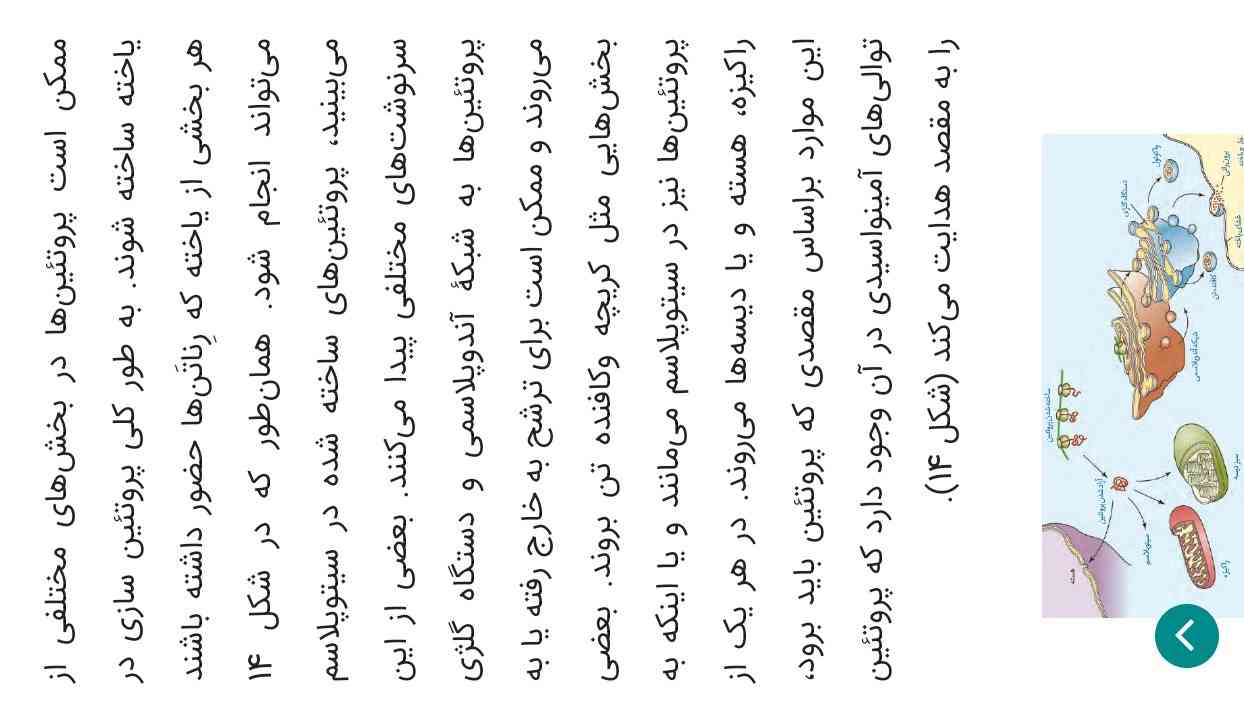 ممکن است پروتئین‌ها در بخش‌های مختلفی از
یاخته ساخته شوند. به طور کلی پروتئین سازی در
هر بخشی از یاخته که رِناتَن‌ها حضور داشته باشند
می‌تواند انجام شود. همان‌طور که در شکل ۱۴
می‌بینید، پروتئین‌های ساخته شده در سیتوپلاسم
سرنوشت‌های مختلفی پیدا می‌کنند. بعضی از این
پروتئین‌ها به شبکهٔ آندوپلاسمی و دستگاه گلژی
می‌روند و ممکن است برای ترشح به خارج رفته یا به
بخش‌هایی مثل کریچه وکافنده تن بروند. بعضی
پروتئین‌ها نیز در سیتوپلاسم می‌مانند و یا اینکه به
راکیزه، هسته و یا دیسه‌ها می‌روند. در هر یک از
این موارد براساس مقصدی که پروتئین باید برود،
توالی‌های آمینواسیدی در آن وجود دارد که پروتئین
را به مقصد هدایت می‌کند (شکل ۱۴).
واکوئول
برون‌رانی
دستگاه گلژی
غشای یاخته
کافنده‌تن
شبکه آندوپلاسمی
ساخته شدن پروتئین
آزاد شدن پروتئین
سبز دیسه
سیتوپلاسم
راکیزه
هسته